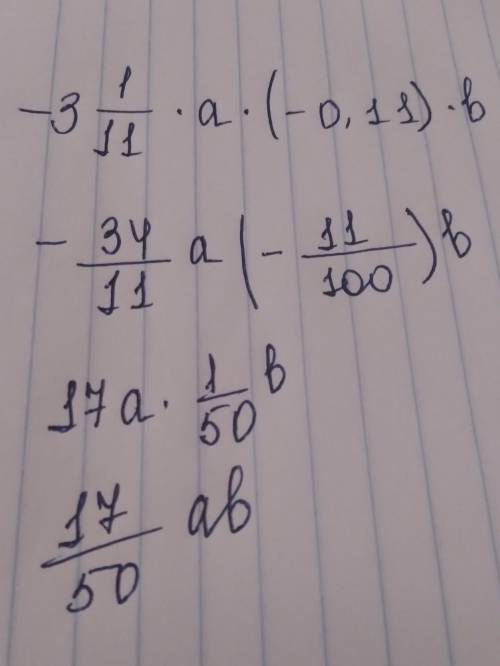 -3 1/11 · a · (-0,11) · b
- 34/11 a (- 11/100) b
17a · 1/50 b
17/50 ab